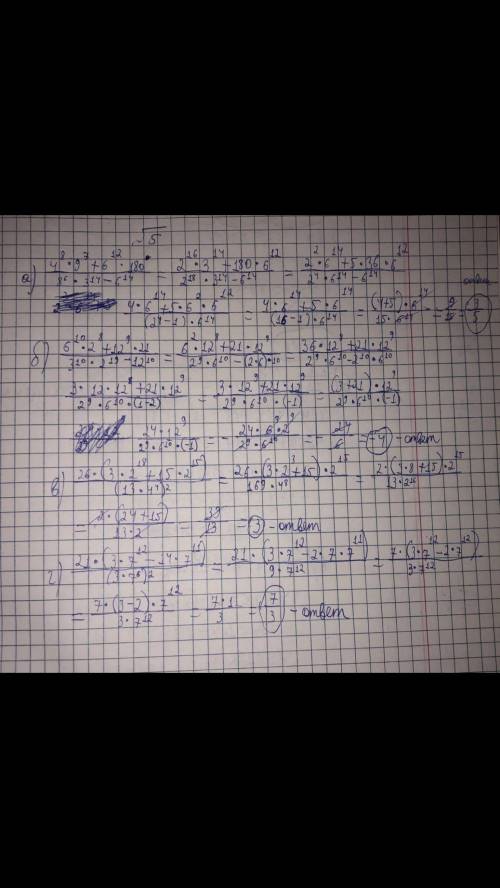 √5
а) (4^8 · 9^7 + 6^12 · 180) / (8^6 · 3^14 − 6^14) = (2^16 · 3^14 + 180 · 6^12) / (2^18 · 3^14 − 6^14) = (2^2 · 6^14 + 5 · 36 · 6^12) / (2^4 · 6^14 − 6^14)
(4 · 6^14 + 5 · 6^2 · 6^12) / ((2^4 − 1) · 6^14) = (4 · 6^14 + 5 · 6^14) / ((16 − 1) · 6^14) = ((4+5) · 6^14) / (15 · 6^14) = 9/15 = 3/5 ответ
б) (6^10 · 2^8 + 12^9 · 21) / (3^10 · 2^19 − 12^10) = (6^2 · 12^8 + 21 · 12^9) / (2^9 · 6^10 − (2·6)^10) = (36 · 12^8 + 21 · 12^9) / (2^9 · 6^10 − 2^10 · 6^10)
(3 · 12 · 12^8 + 21 · 12^9) / (2^9 · 6^10 · (1−2)) = (3 · 12^9 + 21 · 12^9) / (2^9 · 6^10 · (−1)) = ((3+21) · 12^9) / (2^9 · 6^10 · (−1))
(24 · 12^9) / (2^9 · 6^10 · (−1)) = − (24 · 6^9 · 2^9) / (2^9 · 6^10) = − 24/6 = −4 - ответ
в) (26 · (3 · 2^18 + 15 · 2^15)) / (13 · 4^4)^2 = (26 · (3 · 2^3 + 15) · 2^15) / (169 · 4^8) = (2 · (3 · 8 + 15) · 2^15) / (13 · 2^16)
= (2 · (24 + 15)) / (13 · 2) = 39/13 = 3 - ответ
г) (21 · (3 · 7^12 − 14 · 7^11)) / (3 · 7^6)^2 = (21 · (3 · 7^12 − 2 · 7 · 7^11)) / (9 · 7^12) = (7 · (3 · 7^12 − 2 · 7^12)) / (3 · 7^12)
= (7 · (3−2) · 7^12) / (3 · 7^12) = (7 · 1) / 3 = 7/3 - ответ